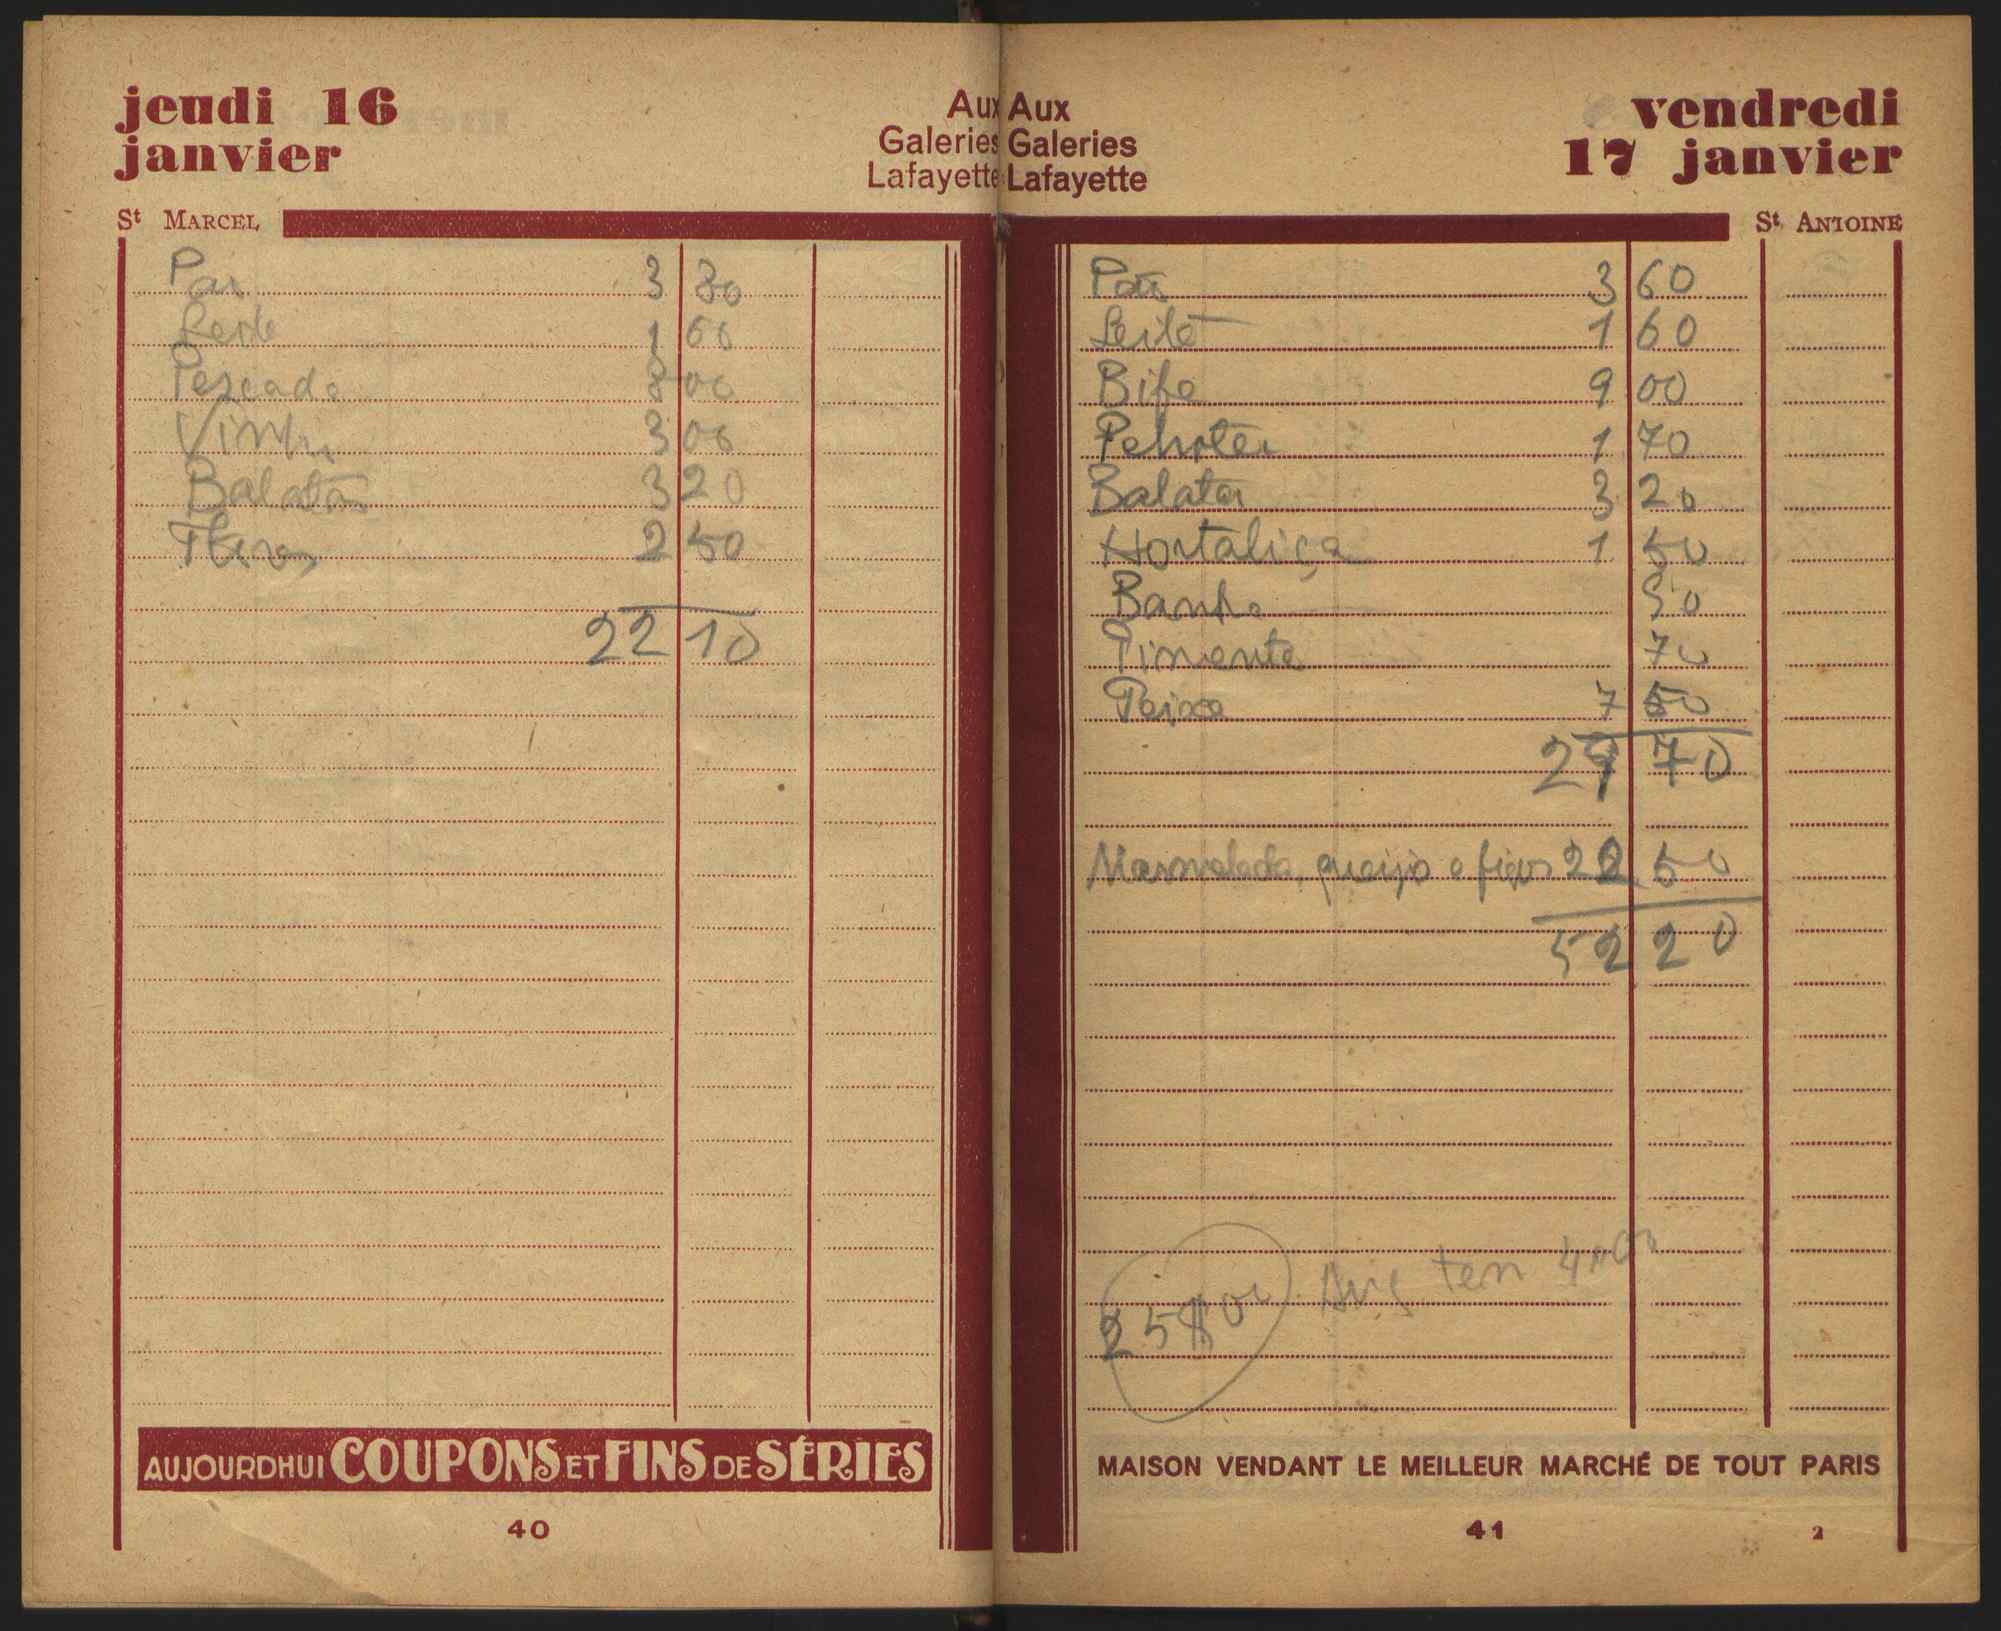 jeudi 16
janvier
Aux
Galeries
Lafayette
St MARCEL
Pão 3 80
Leite 1 60
Pescada 8 00
Vinho 3 00
Batatas 3 20
2 50
22 10
AUJOURDHUI COUPONS ET FINS DE SÉRIES
40
Aux
Galeries
Lafayette
vendredi
17 janvier
St ANTOINE
Pão 3 60
Leite 1 60
Bife 9 00
1 70
Batatas 3 20
Hortaliça 1 50
Banho 90
Pimenta 70
Peixe 7 50
29 70
Marmelada, queijo e figos 22 50
52 20
25$00 tem
MAISON VENDANT LE MEILLEUR MARCHÉ DE TOUT PARIS
41 2